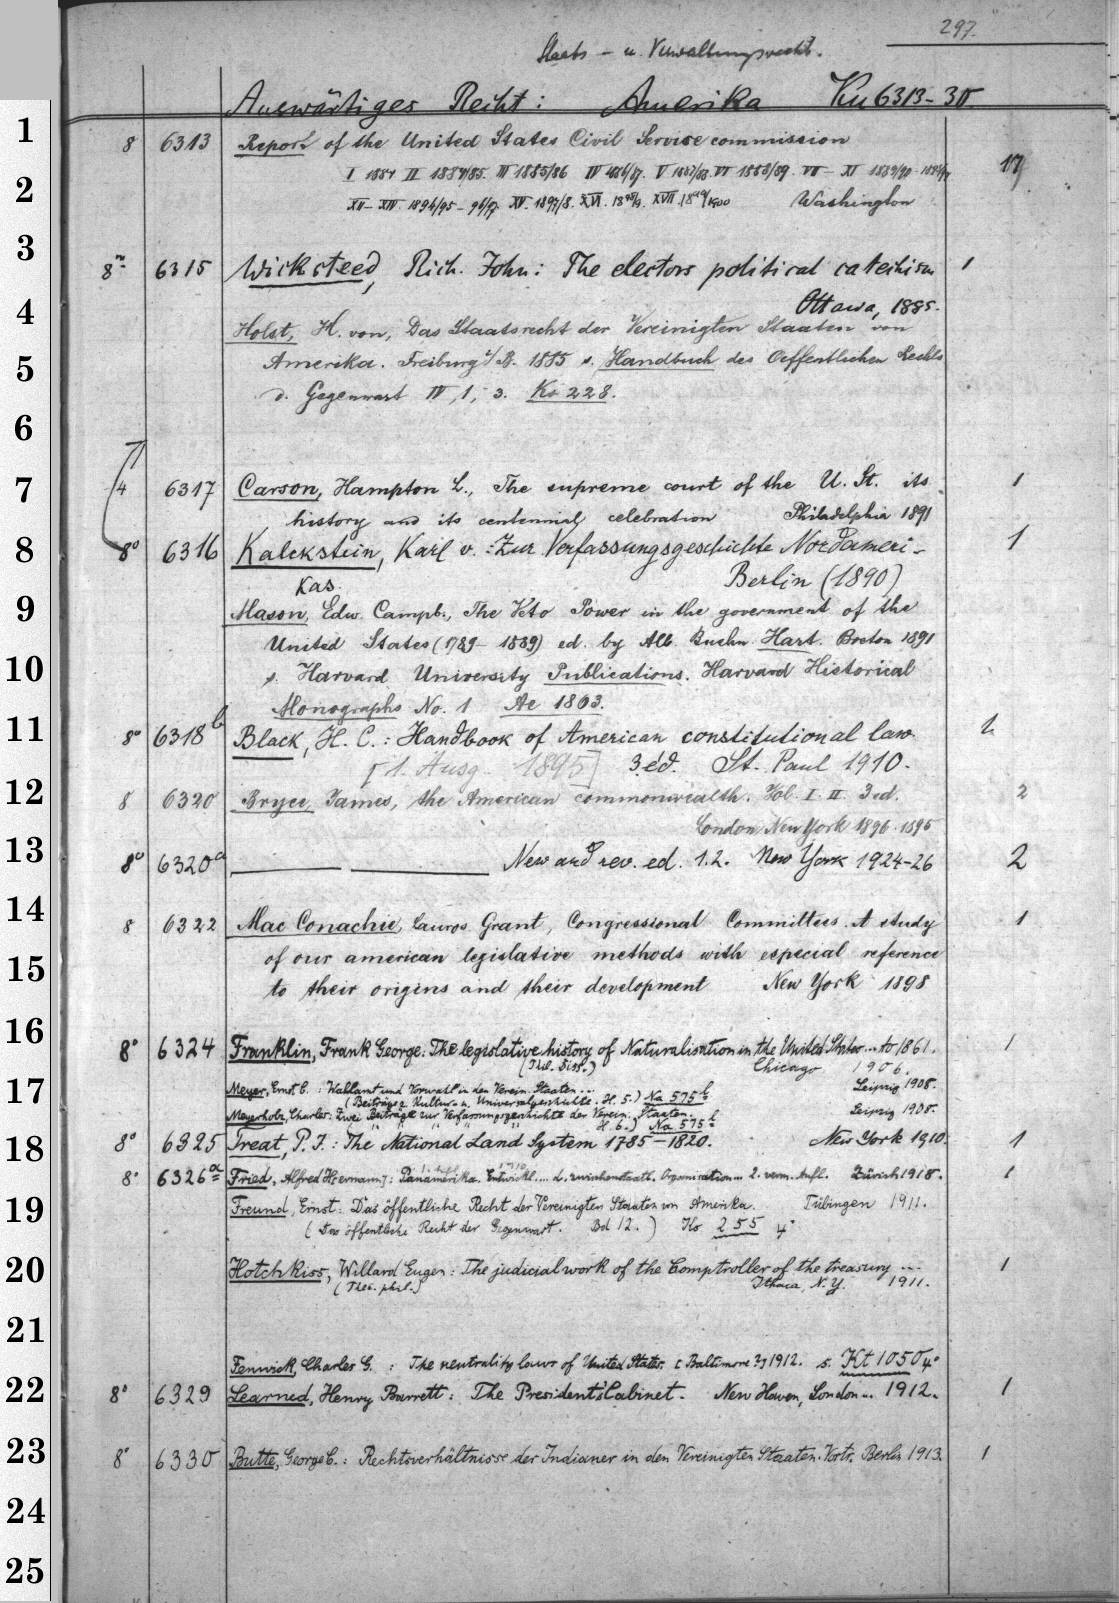 297.
Staats- u. Verwaltungsrecht.
Auswärtiges Recht: Amerika Ku 6313-30
1
8 6313 Report of the United States Civil Service commission
I 1884 II 1884/85. III 1885/86 IV 1886/87. V 1887/88. VI 1888/89. VII - XI 1889/90 - 1893/94 17
2
XII - XIV. 1894/95 - 96/97. XV. 1897/8. XVI. 1898/9. XVII. 1899/1900 Washington
3
8° 6315 Wicksteed, Rich. John: The electors political catechism 1
4
Ottawa, 1885.
Holst, H. von, Das Staatsrecht der Vereinigten Staaten von
5
Amerika. Freiburg i/B. 1885 s. Handbuch des Oeffentlichen Rechts
d. Gegenwart IV, 1, 3. Ko 228.
6
7
4 6317 Carson, Hampton L., The supreme court of the U. St. its 1
history and its centennial celebration Philadelphia 1891
8
8° 6316 Kalckstein, Karl v.: Zur Verfassungsgeschichte Nordameri- 1
kas. Berlin (1890)
9
Mason, Edw. Campb., The Veto Power in the government of the
United States (1789-1889) ed. by Alb. Bushn. Hart. Boston 1891
10
s. Harvard University Publications. Harvard Historical
Monographs No. 1 Ae 1863.
11
8° 6318b Black, H. C.: Handbook of American constitutional law
[1. Ausg. 1895] 3 éd. St. Paul 1910.
12
8 6320 Bryce, James, the American commonwealth. Vol. I. II. 3 ed. 2
London New York 1896. 1895
13
8° 6320a New and rev. ed. 1.2. New York 1924-26 2
14
8 6322 Mac Conachie, Lauros Grant, Congressional Committees. A study 1
of our american legislative methods with especial reference
15
to their origins and their development New York 1898
16
8° 6324 Franklin, Frank George: The legislative history of Naturalisation in the United States ... to 1861. 1
(Phil. Diss.) Chicago 1906.
17
Meyer, Ernst C.: Wahlamt und Vorwahl in den Verein. Staaten ... Leipzig 1908.
(Beiträge z. Kultur- u. Universalgeschichte. H. 5.) Na 575b
Meyerholz, Charles: Zwei Beiträge zur Verfassungsgeschichte der Verein. Staaten. Leipzig 1908.
" " " " " H. 6.) Na 575b
18
8° 6325 Treat, P. J.: The National Land System 1785-1820. New York 1910. 1
8° 6326a Fried, Alfred Hermann: Panamerika. Entwickl.... d. zwischenstaatl. Organisation... 2. verm. Aufl. Zürich 1918. 1
19
Freund, Ernst: Das öffentliche Recht der Vereinigten Staaten von Amerika. Tübingen 1911.
(Das öffentliche Recht der Gegenwart. Bd 12.) Ko 255 4°
20
Hotchkiss, Willard Eugen: The judicial work of the Comptroller of the treasury ... 1
(Thes. phil.) Ithaca, N.Y. 1911.
21
Fenwick, Charles G.: The neutrality laws of United States. [Baltimore ?] 1912. s. Kt 1050 4°
22
8° 6329 Learned, Henry Barrett: The President's Cabinet. New Haven, London... 1912. 1
23
8° 6330 Butte, George C.: Rechtsverhältnisse der Indianer in den Vereinigten Staaten. Vortr. Berlin 1913. 1
24
25